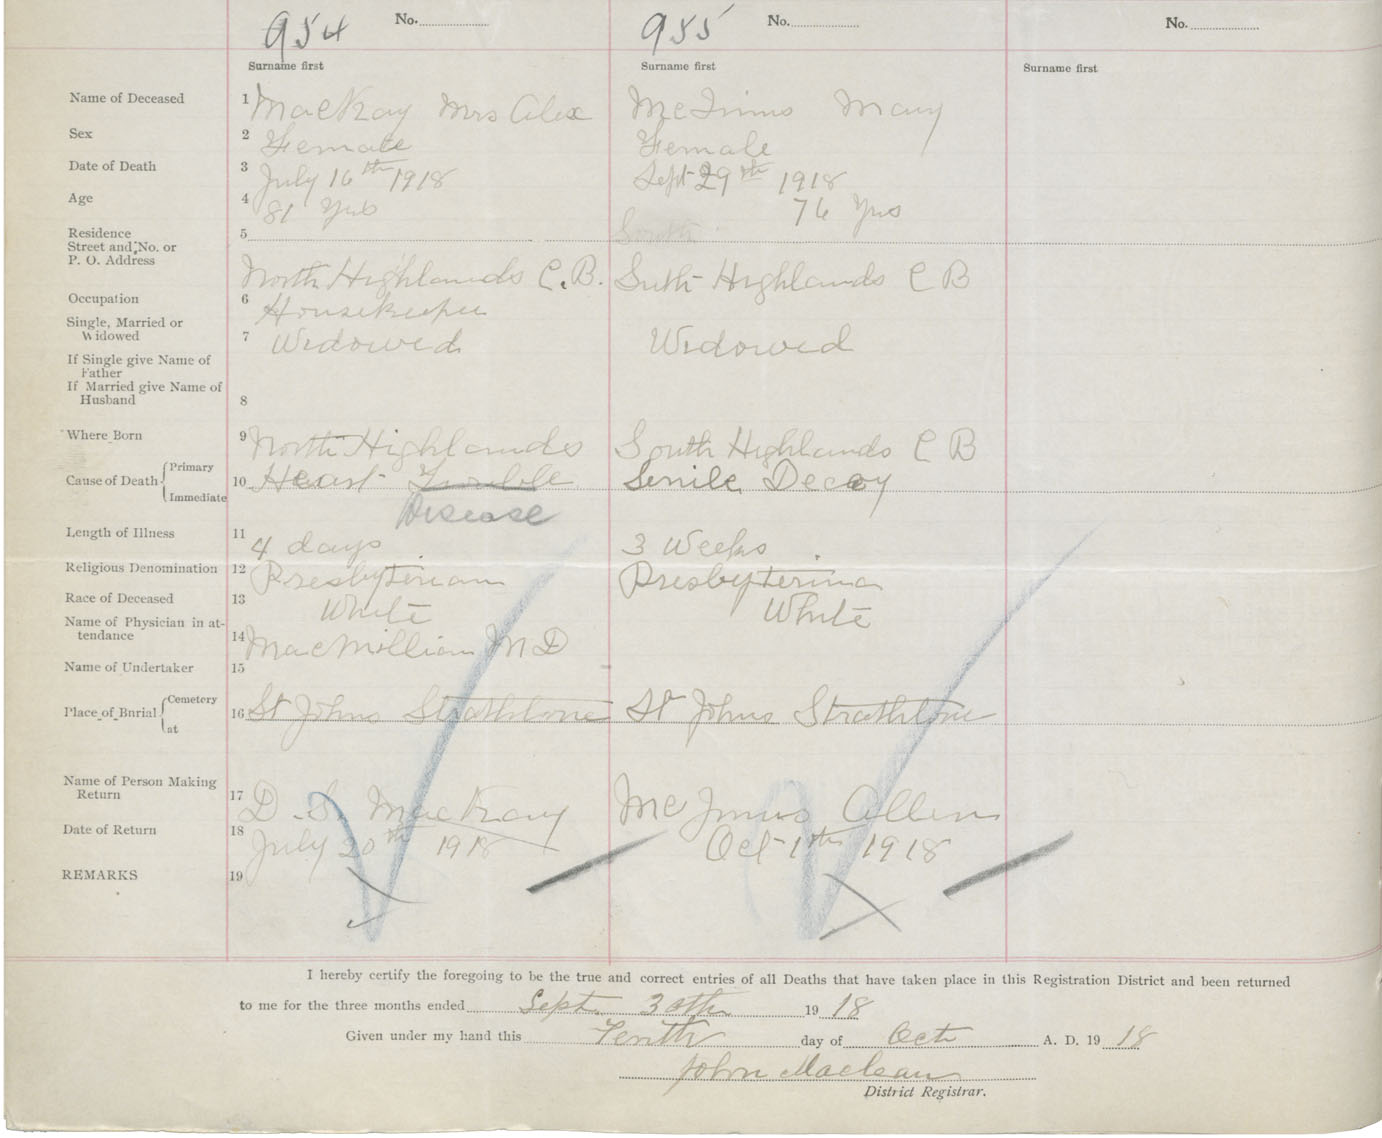 954 No. 955 No. No.
Surname first Surname first Surname first
Name of Deceased 1 MacKay Mrs Alex McInnis Mary
Sex 2 Female Female
Date of Death 3 July 16th 1918 Sept 29th 1918
Age 4 81 Yrs 76 Yrs
Residence 5 South
Street and No. or
P. O. Address North Highlands C.B. Suth Highlands C B
Occupation 6 Housekeeper
Single, Married or
Widowed 7 Widowed Widowed
If Single give Name of
Father
If Married give Name of
Husband 8
Where Born 9 North Highlands South Highlands C B
Cause of Death Primary
Immediate 10 Heart Trouble Senile Decay
Disease
Length of Illness 11 4 days 3 Weeks
Religious Denomination 12 Presbyterian Presbyterina
Race of Deceased 13 White White
Name of Physician in at-
tendance 14 MacMillian M D
Name of Undertaker 15
Place of Burial Cemetery
at 16 St Johns St Johns
Name of Person Making
Return 17 D. S. MacKay Mc Innis Allen
Date of Return 18 July 20th 1918 Oct 1th 1918
REMARKS 19
I hereby certify the foregoing to be the true and correct entries of all Deaths that have taken place in this Registration District and been returned
to me for the three months ended Sept. 30th 19 18
Given under my hand this Tenth day of Oct A. D. 19 18
John Maclean
District Registrar.